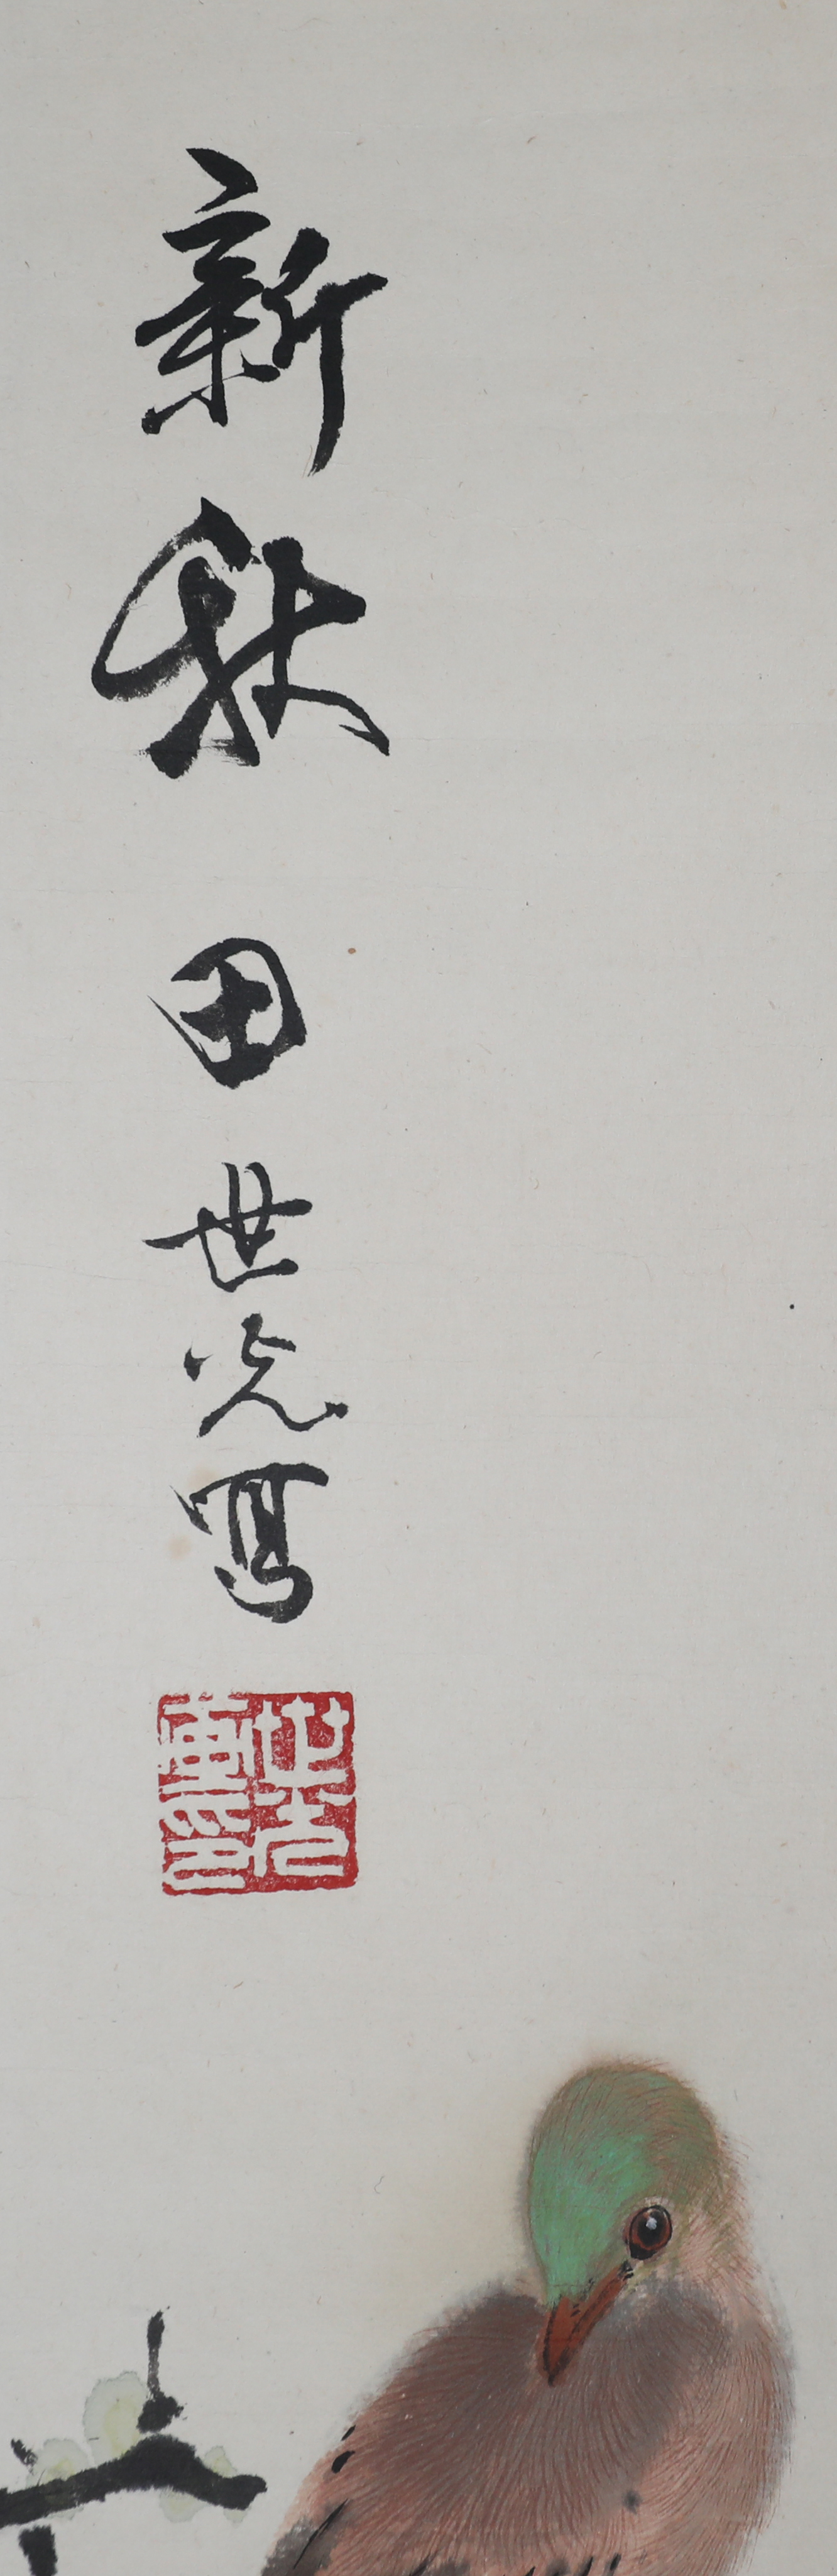 新秋 田世光寫
世光
畫印